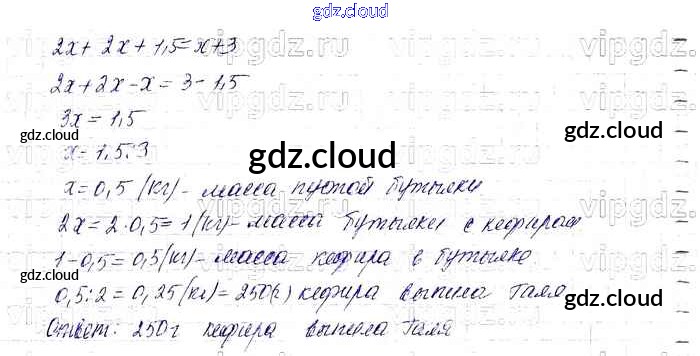 gdz.cloud
2x + 2x + 1,5 = x + 3
2x + 2x - x = 3 - 1,5
3x = 1,5
x = 1,5 : 3
x = 0,5 (кг) - масса пустой бутылки
2x = 2 · 0,5 = 1 (кг) - масса бутылки с кефиром
1 - 0,5 = 0,5 (кг) - масса кефира в бутылке
0,5 : 2 = 0,25 (кг) = 250 (г) кефира выпила Галя
Ответ: 250 г кефира выпила Галя
vipgdz.ru vipgdz.ru vipgdz.ru
gdz.cloud gdz.cloud
gdz.cloud
gdz.cloud gdz.cloud
gdz.cloud